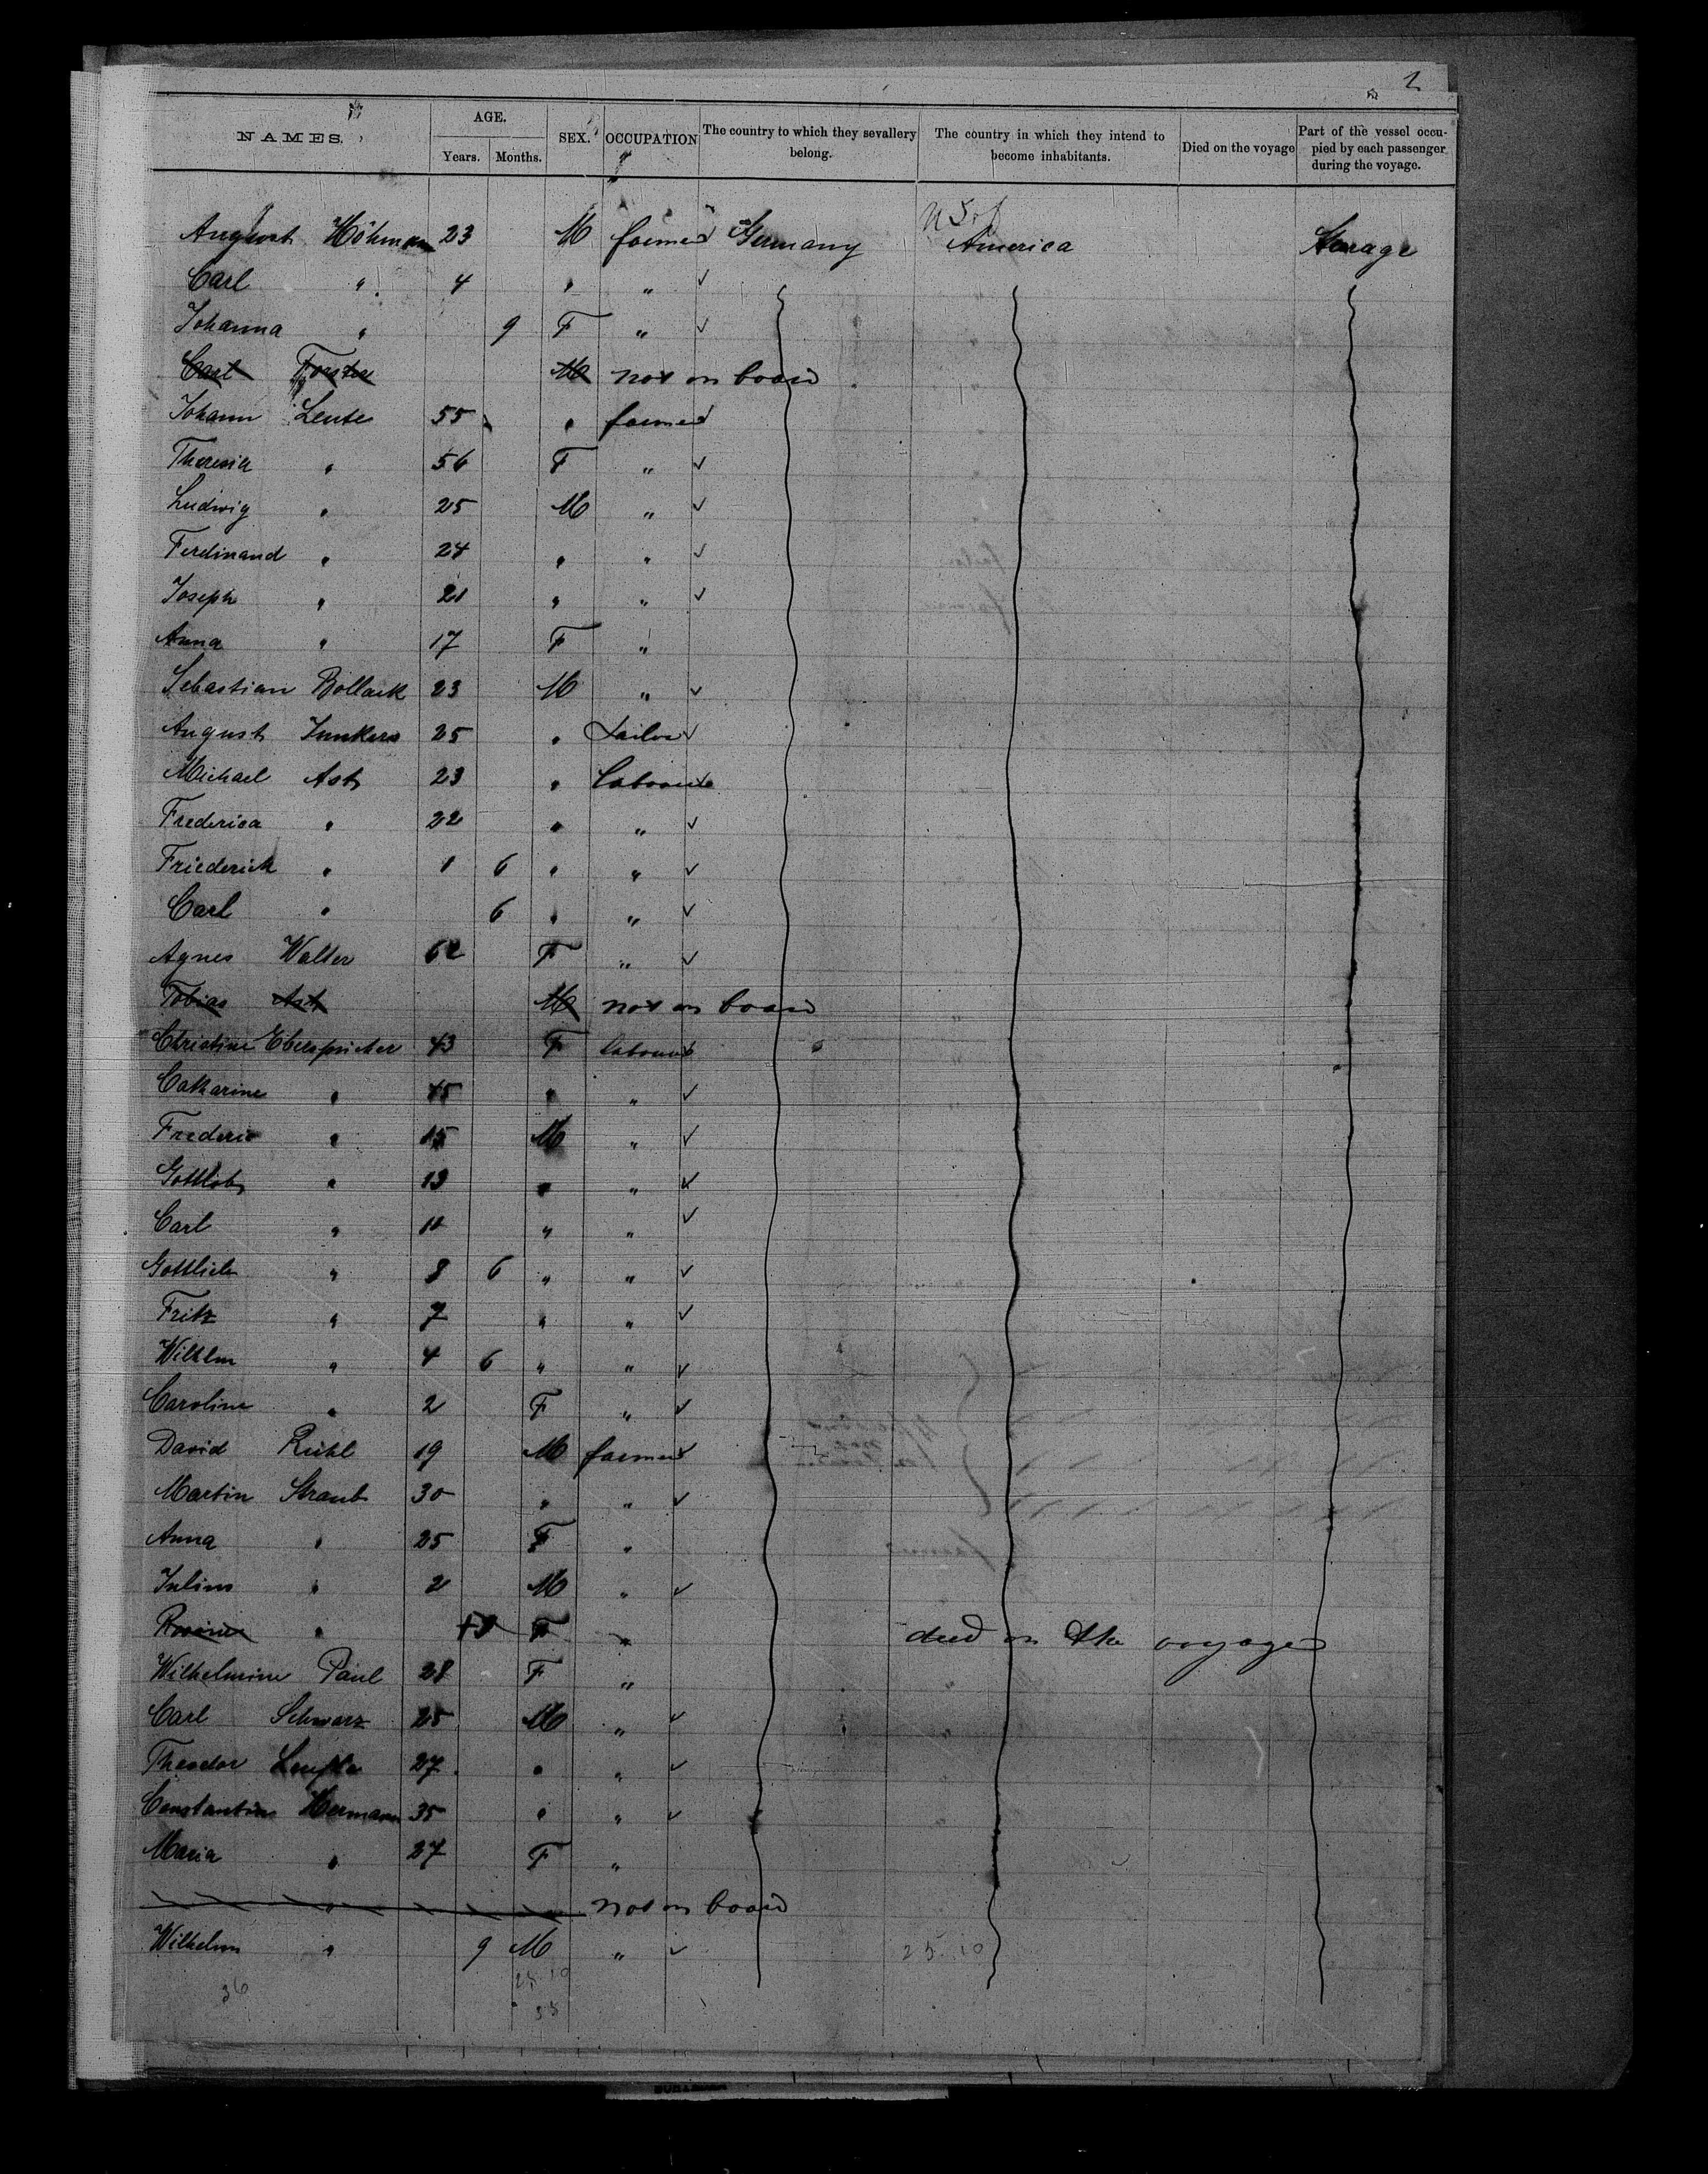 2
NAMES. AGE. SEX. OCCUPATION The country to which they sevallery belong. The country in which they intend to become inhabitants. Died on the voyage Part of the vessel occupied by each passenger during the voyage.
Years. Months.
Aughust Höhmann 23 M farmer Germany U S of America Sterage
Carl " 4 " "
Johanna " 9 F "
Carl Forster M not on board
Johann Leute 55 " farmer
Theresia " 56 F "
Ludwig " 25 M "
Ferdinand " 24 " "
Joseph " 21 " "
Anna " 17 F "
Sebastian Bollack 23 M "
August Junkers 25 " Tailor
Michael Ast 23 " labourer
Frederica " 22 " "
Friederich " 1 6 " "
Carl " 6 " "
Agnes Walter 62 F "
Tobias Ast M not on board
Christine Eberspächer 43 F labourer
Catharine " 45 " "
Frederic " 15 M "
Gottlob " 13 " "
Carl " 10 " "
Gottlieb " 8 6 " "
Fritz " 7 " "
Wilhlm " 4 6 " "
Caroline " 2 F "
David Riehl 19 M farmer
Martin Straub 30 " "
Anna " 25 F "
Julius " 2 M "
Rosine " F " died on the voyage
Wilhelmine Paul 28 F "
Carl Schwarz 25 M "
Theodor 27 " "
Constantin Hermann 35 " "
Maria " 27 F "
" not on board
Wilhelm " 9 M " 25.10
36 25.10
35